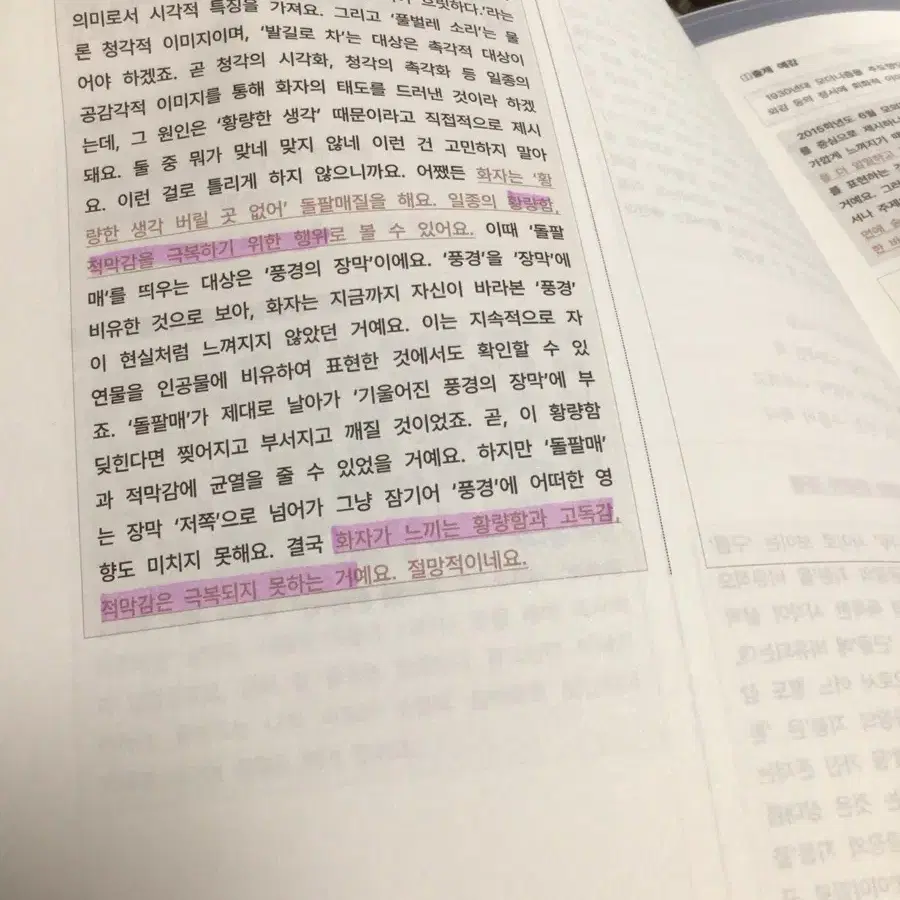 으릿하다.'라는
의미로서 시각적 특징을 가져요. 그리고 '풀벌레 소리'는 물
론 청각적 이미지이며, '발길로 차'는 대상은 촉각적 대상이
어야 하겠죠. 곧 청각의 시각화, 청각의 촉각화 등 일종의
공감각적 이미지를 통해 화자의 태도를 드러낸 것이라 하겠
는데, 그 원인은 '황량한 생각' 때문이라고 직접적으로 제시
돼요. 둘 중 뭐가 맞네 맞지 않네 이런 건 고민하지 말아
요. 이런 걸로 틀리게 하지 않으니까요. 어쨌든 화자는 '황
량한 생각 버릴 곳 없어' 돌팔매질을 해요. 일종의 황량함,
적막감을 극복하기 위한 행위로 볼 수 있어요. 이때 '돌팔
매'를 띄우는 대상은 '풍경의 장막'이에요. '풍경'을 '장막'에
비유한 것으로 보아, 화자는 지금까지 자신이 바라본 '풍경'
이 현실처럼 느껴지지 않았던 거예요. 이는 지속적으로 자
연물을 인공물에 비유하여 표현한 것에서도 확인할 수 있
죠. '돌팔매'가 제대로 날아가 '기울어진 풍경의 장막'에 부
딪힌다면 찢어지고 부서지고 깨질 것이었죠. 곧, 이 황량함
과 적막감에 균열을 줄 수 있었을 거예요. 하지만 '돌팔매'
는 장막 '저쪽'으로 넘어가 그냥 잠기어 '풍경'에 어떠한 영
향도 미치지 못해요. 결국 화자가 느끼는 황량함과 고독감,
적막감은 극복되지 못하는 거예요. 절망적이네요.
출제 예감
1930년대 모더니즘을
2015학년도 6월
를 중심으로 제시하
가깝게 느껴지기 때
를 표현하는
거예요. 그러
서나 주제